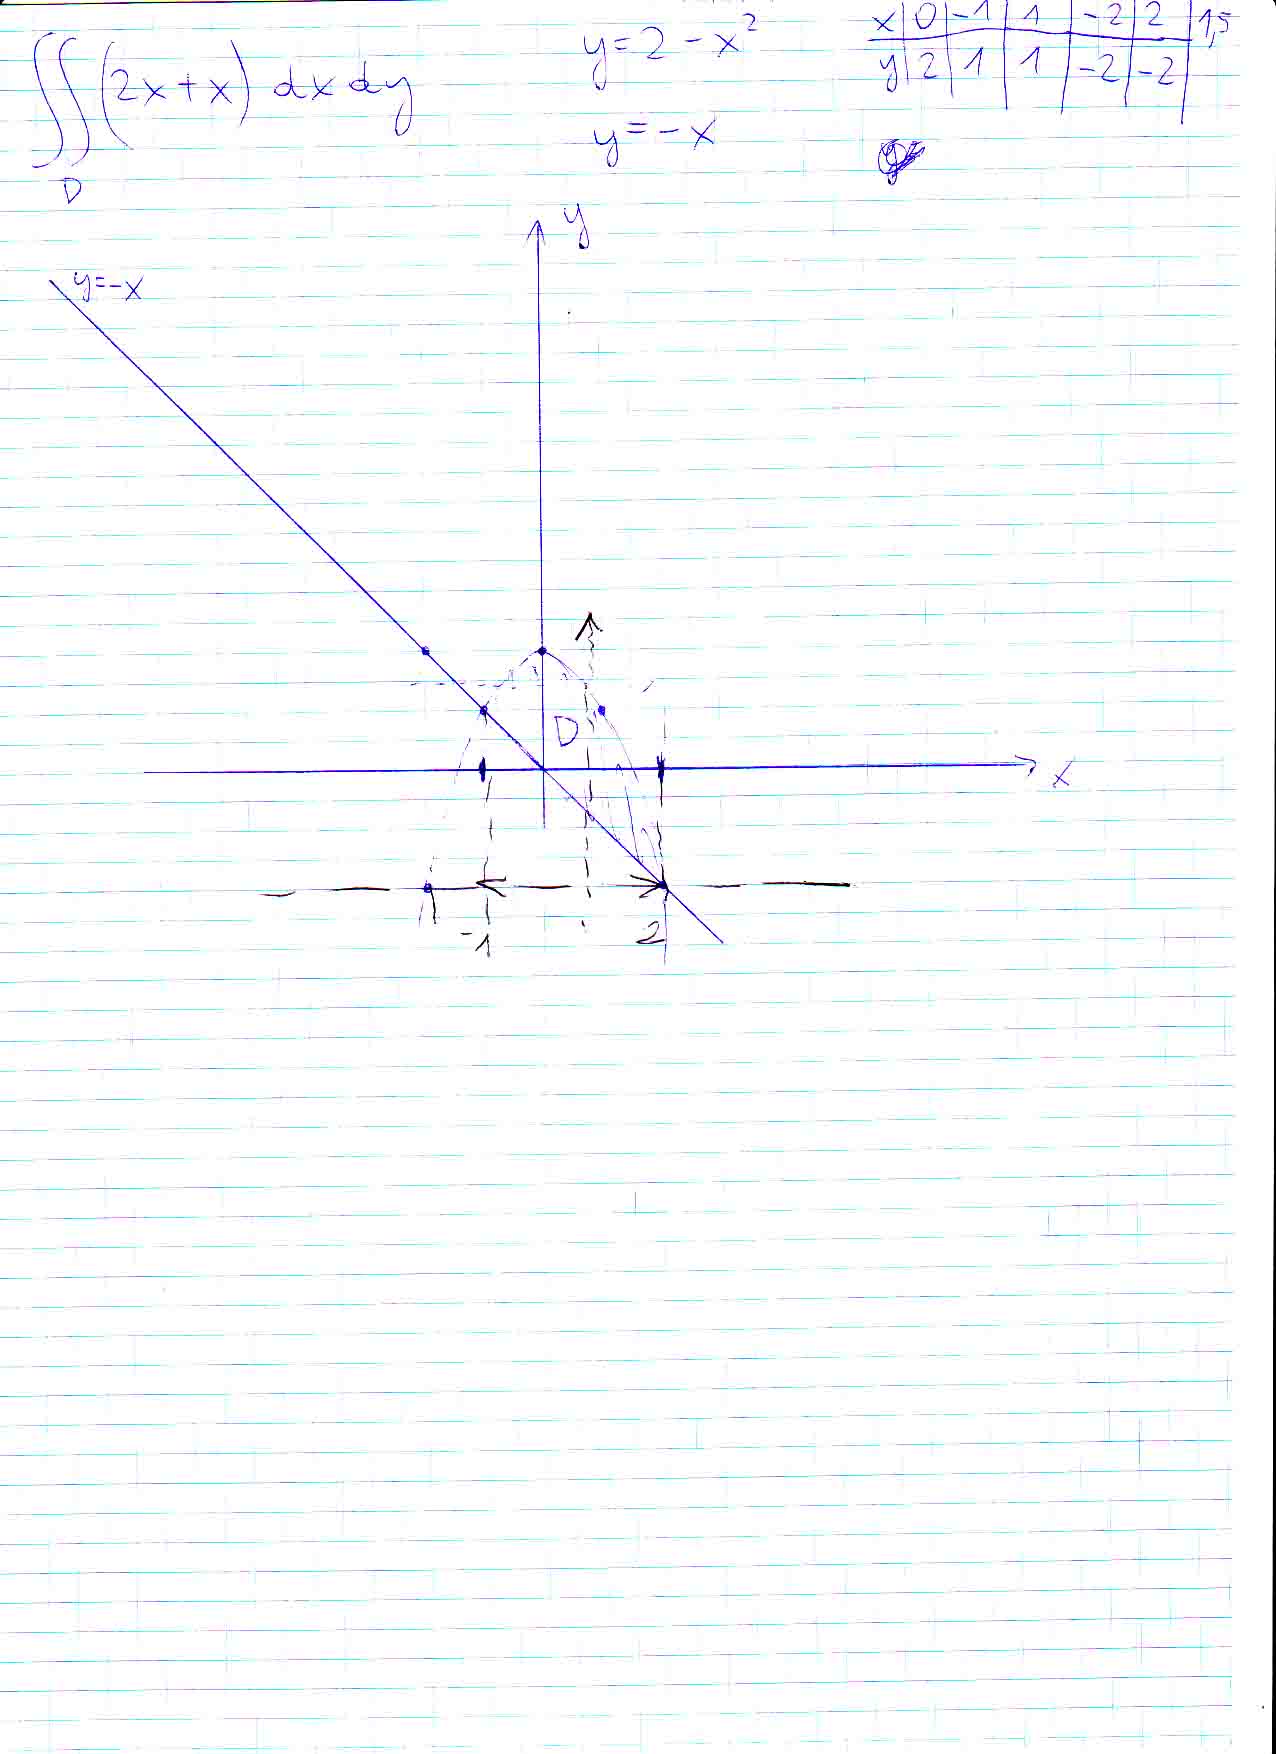 ∬ (2x+x) dx dy
D
y=2-x²
y=-x
x | 0 | -1 | 1 | -2 | 2 | 1,5
y | 2 | 1 | 1 | -2 | -2 |
y
y=-x
D
x
-1
2